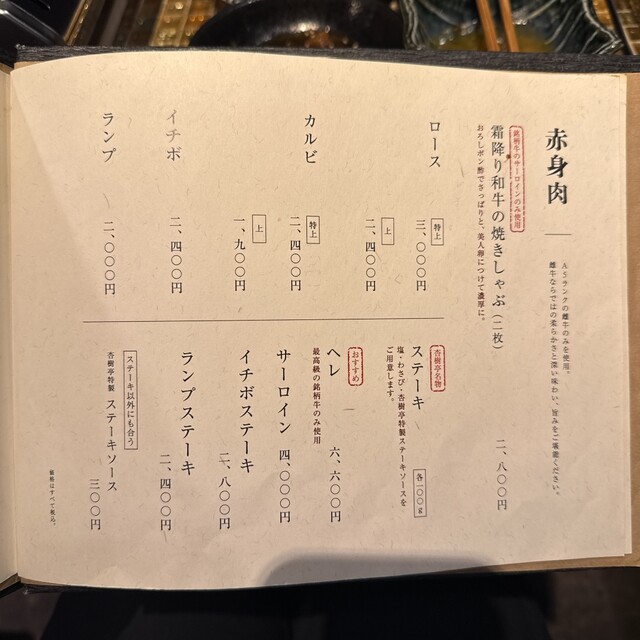 赤身肉
A5ランクの雌牛のみを使用。
雌牛ならではの柔らかさと深い味わい、旨みをご堪能ください。
銘柄牛のサーロインのみ使用
霜降り和牛の焼きしゃぶ(二枚)
二、八〇〇円
おろしポン酢でさっぱりと、美人卵につけて濃厚に。
ロース
特上
三、〇〇〇円
上
二、四〇〇円
カルビ
特上
二、四〇〇円
上
一、九〇〇円
イチボ
二、四〇〇円
ランプ
二、〇〇〇円
杏樹亭名物
ステーキ
各一〇〇g
塩・わさび・杏樹亭特製ステーキソースを
ご用意します。
おすすめ
ヘレ
六、六〇〇円
最高級の銘柄牛のみ使用
サーロイン
四、〇〇〇円
イチボステーキ
二、八〇〇円
ランプステーキ
二、四〇〇円
ステーキ以外にも合う
杏樹亭特製 ステーキソース
三〇〇円
価格はすべて税込。